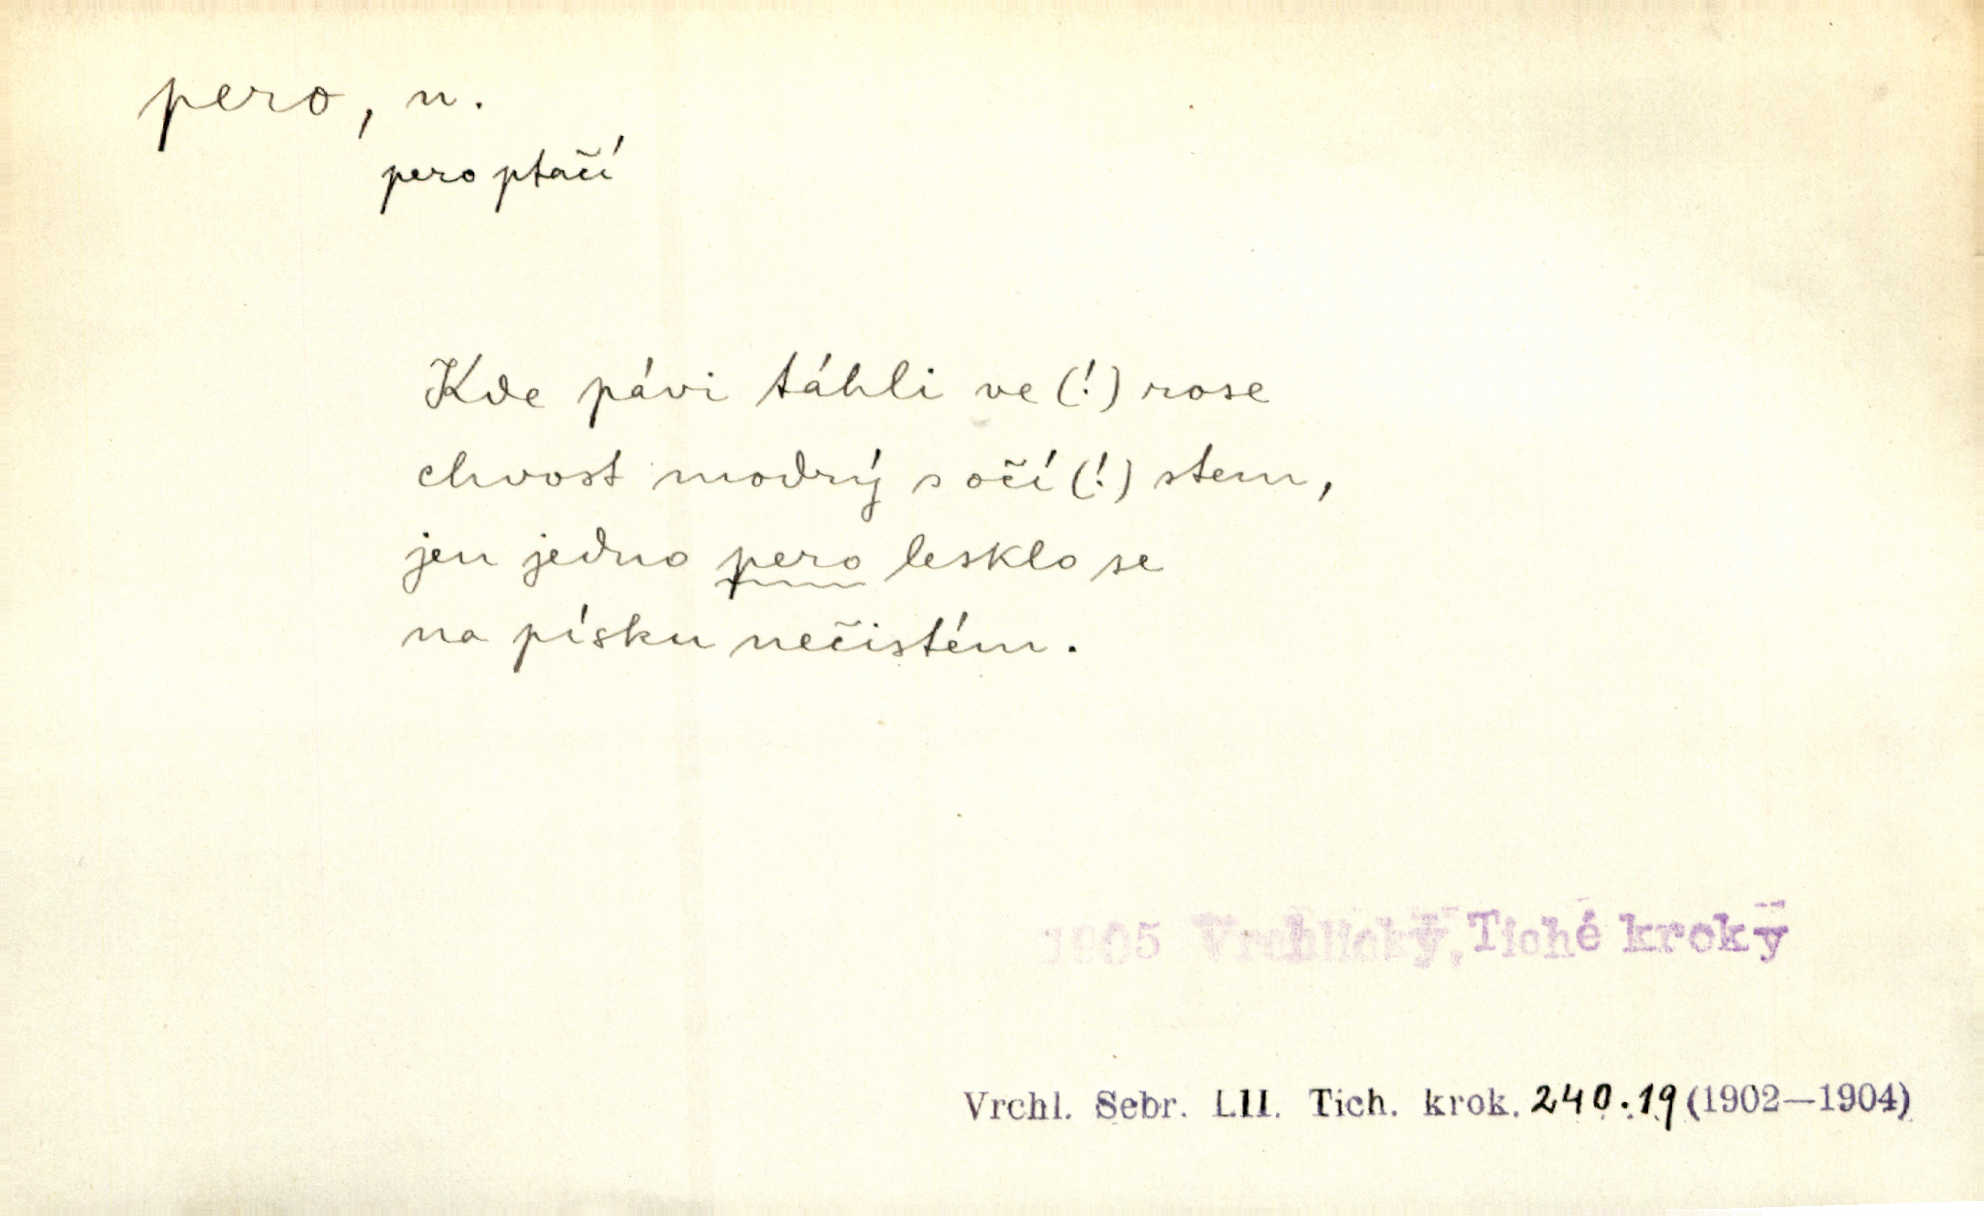 pero, n.
pero ptačí
Kde pávi táhli ve (!) rose
chvost modrý s očí (!) stem,
jen jedno pero lesklo se
na písku nečistém.
1905 Vrchlický, Tiché kroky
Vrchl. Sebr. LII. Tich. krok. 240.19 (1902—1904)